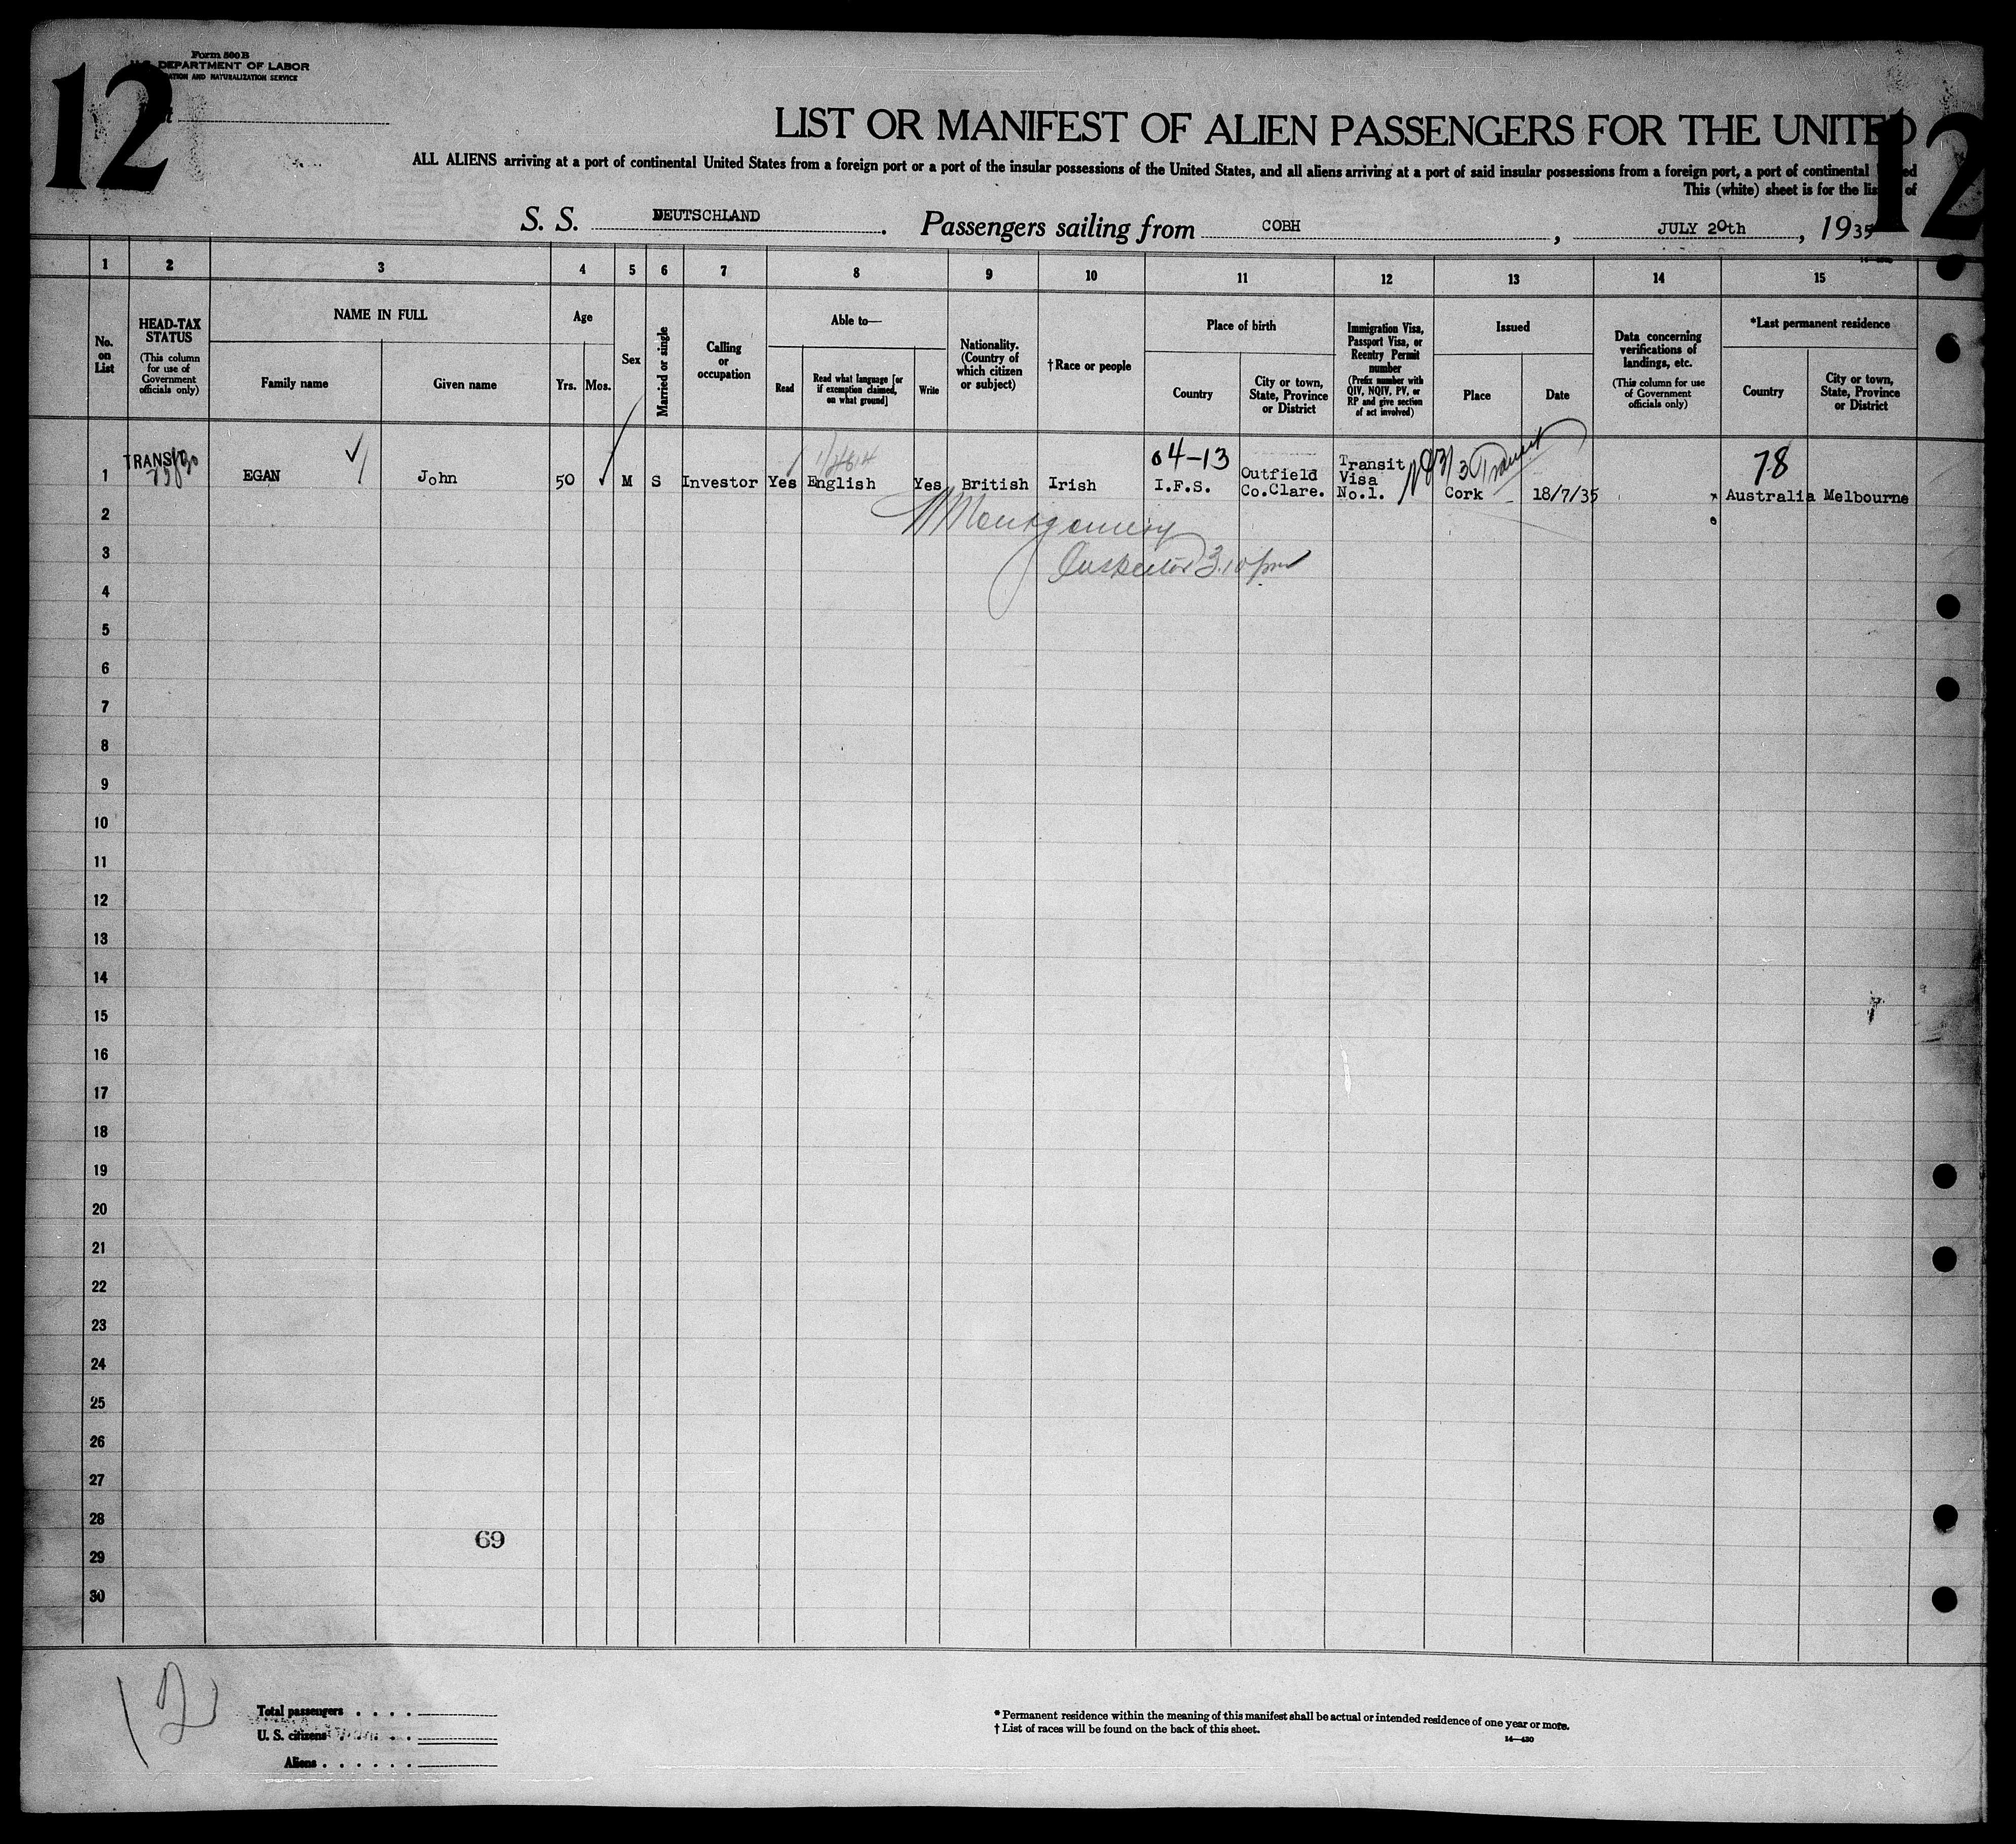 12
Form 500 B
U.S. DEPARTMENT OF LABOR
AND NATURALIZATION SERVICE
12
LIST OR MANIFEST OF ALIEN PASSENGERS FOR THE UNITED
ALL ALIENS arriving at a port of continental United States from a foreign port or a port of the insular possessions of the United States, and all aliens arriving at a port of said insular possessions from a foreign port, a port of continental
This (white) sheet is for the of
S. S. DEUTSCHLAND. Passengers sailing from COBH, JULY 20th, 1935
1 2 3 4 5 6 7 8 9 10 11 12 13 14 15
No. on List
HEAD-TAX STATUS
(This column for use of Government officials only)
NAME IN FULL
Family name
Given name
Age
Yrs. Mos.
Sex
Married or single
Calling or occupation
Able to—
Read
Read what language [or if exemption claimed, on what ground]
Write
Nationality. (Country of which citizen or subject)
†Race or people
Place of birth
Country
City or town, State, Province or District
Immigration Visa, Passport Visa, or Reentry Permit number
(Prefix number with QIV, NQIV, PV, or RP and give section of act involved)
Issued
Place
Date
Data concerning verifications of landings, etc.
(This column for use of Government officials only)
*Last permanent residence
Country
City or town, State, Province or District
04-13
78
1 EGAN John 50 M S Investor Yes English Yes British Irish I.F.S. Outfield Co.Clare. Transit Visa No.1. 3 Transit Cork 18/7/35 Australia Melbourne
2
Montgomery
3
Inspector 3.10 pm
4
5
6
7
8
9
10
11
12
13
14
15
16
17
18
19
20
21
22
23
24
25
26
27
28
69
29
30
12
Total passengers . . . .
U. S. citizens
Aliens . . . . . .
* Permanent residence within the meaning of this manifest shall be actual or intended residence of one year or more.
† List of races will be found on the back of this sheet.
14—430